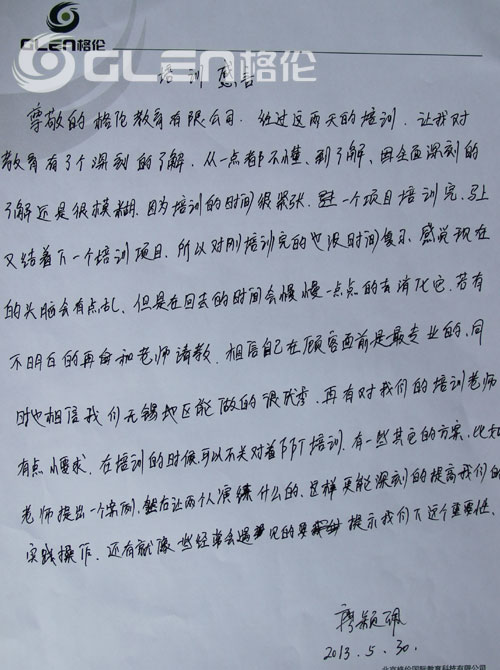 GLEN格伦
GLEN格伦
培训感言
尊敬的格伦教育有限公司.经过这两天的培训.让我对
教育有了个深刻的了解.从一点都不懂.到了解.因全面深刻的
了解还是很模糊.因为培训的时间很紧张.一个项目培训完.马上
又结着下一个培训项目.所以对刚培训完的也没时间复习.感觉现在
的头脑会有点乱.但是在回去的时间会慢慢一点点的去消化它.若有
不明白的再和老师请教.相信自己在顾客面前是最专业的.同
时也相信我们无锡地区能做的很优秀.再有对我们的培训老师
有点小要求.在培训的时候可以不光对着PPT培训.有一些其它的方案.比如
老师提出一个案例.然后让两个人演练什么的.这样更能深刻的提高我们的
实践操作.还有就像些经常会遇见的要提示我们下这个重要性.
廖颖珮
2013.5.30.
北京格伦国际教育科技有限公司